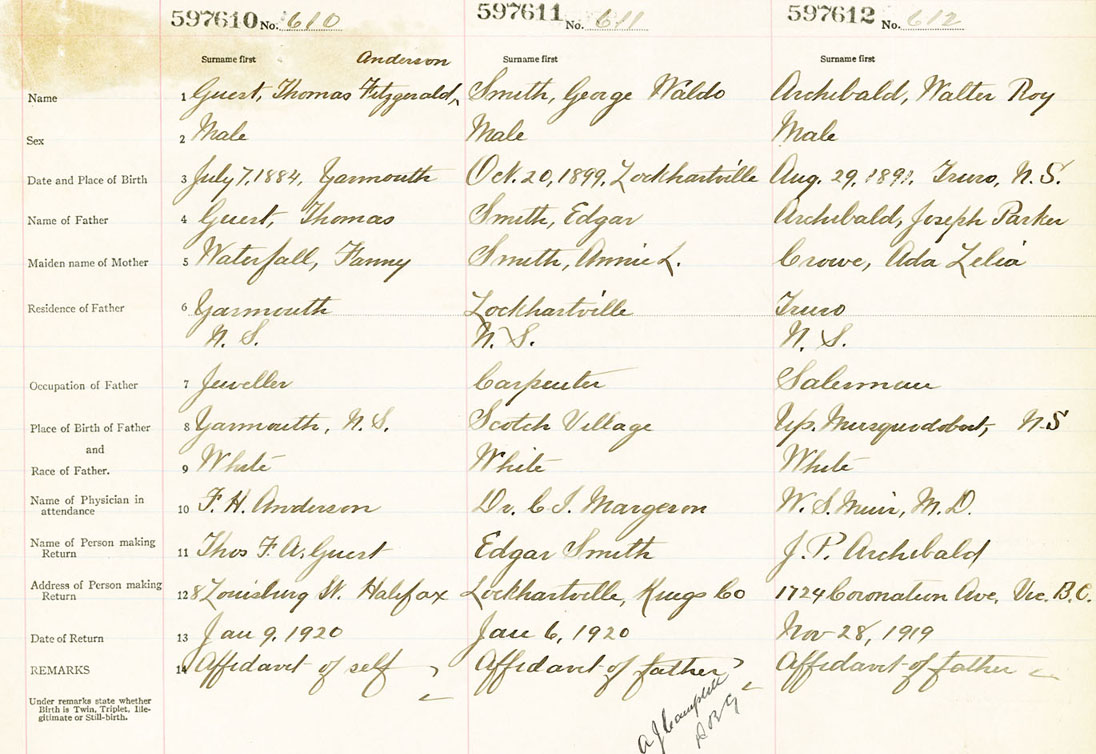 597610 No. 610 597611 No. 611 597612 No. 612
Surname first Anderson Surname first Surname first
Name 1 Guest, Thomas Fitzgerald, Smith, George Waldo Archibald, Walter Roy
Sex 2 Male Male Male
Date and Place of Birth 3 July 7, 1884, Yarmouth Oct. 20, 1899, Lockhartville Aug. 29, 1891, Truro, N.S.
Name of Father 4 Guest, Thomas Smith, Edgar Archibald, Joseph Parker
Maiden name of Mother 5 Waterfall, Fanny Smith, Annie L. Crowe, Ada Zelia
Residence of Father 6 Yarmouth Lockhartville Truro
N. S. N. S. N. S.
Occupation of Father 7 Jeweller Carpenter Salesman
Place of Birth of Father 8 Yarmouth, N.S. Scotch Village Up. Musquodobot, N.S
and
Race of Father. 9 White White White
Name of Physician in
attendance 10 F. H. Anderson Dr. C I. Margeson W. S. Muir, M.D.
Name of Person making
Return 11 Thos F. A. Guest Edgar Smith J. P. Archibald
Address of Person making
Return 12 8 Louisburg St. Halifax Lockhartville, Kings Co 1724 Coronation Ave, Vic. B.C.
Date of Return 13 Jan 9, 1920 Jan 6, 1920 Nov 28, 1919
REMARKS 14 Affidavit of self Affidavit of father Affidavit of father
Under remarks state whether
Birth is Twin, Triplet, Ille-
gitimate or Still-birth.
A J Campbell